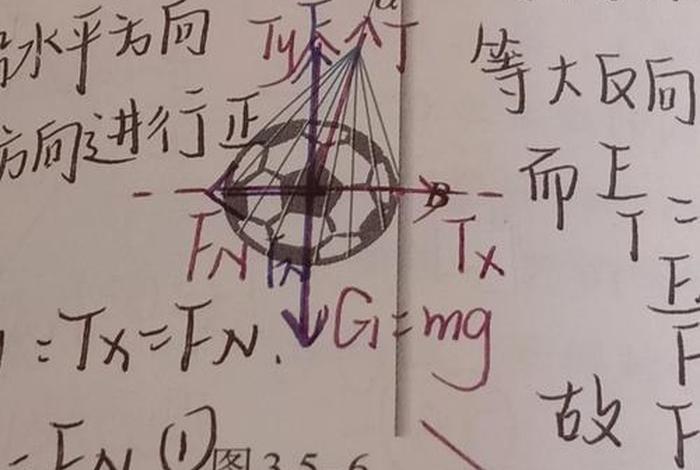 水平方向
方向进行正
Ty F T
α
B
FN FN Tx
G=mg
=Tx=FN.
=FN (1)
图3.5-6
等大反向
而 F/T =
F/F
故 F